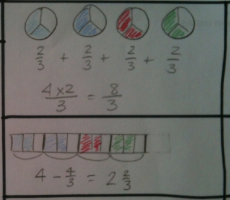 2/3 + 2/3 + 2/3 + 2/3
4x2/3 = 8/3
4 - 4/3 = 2 2/3